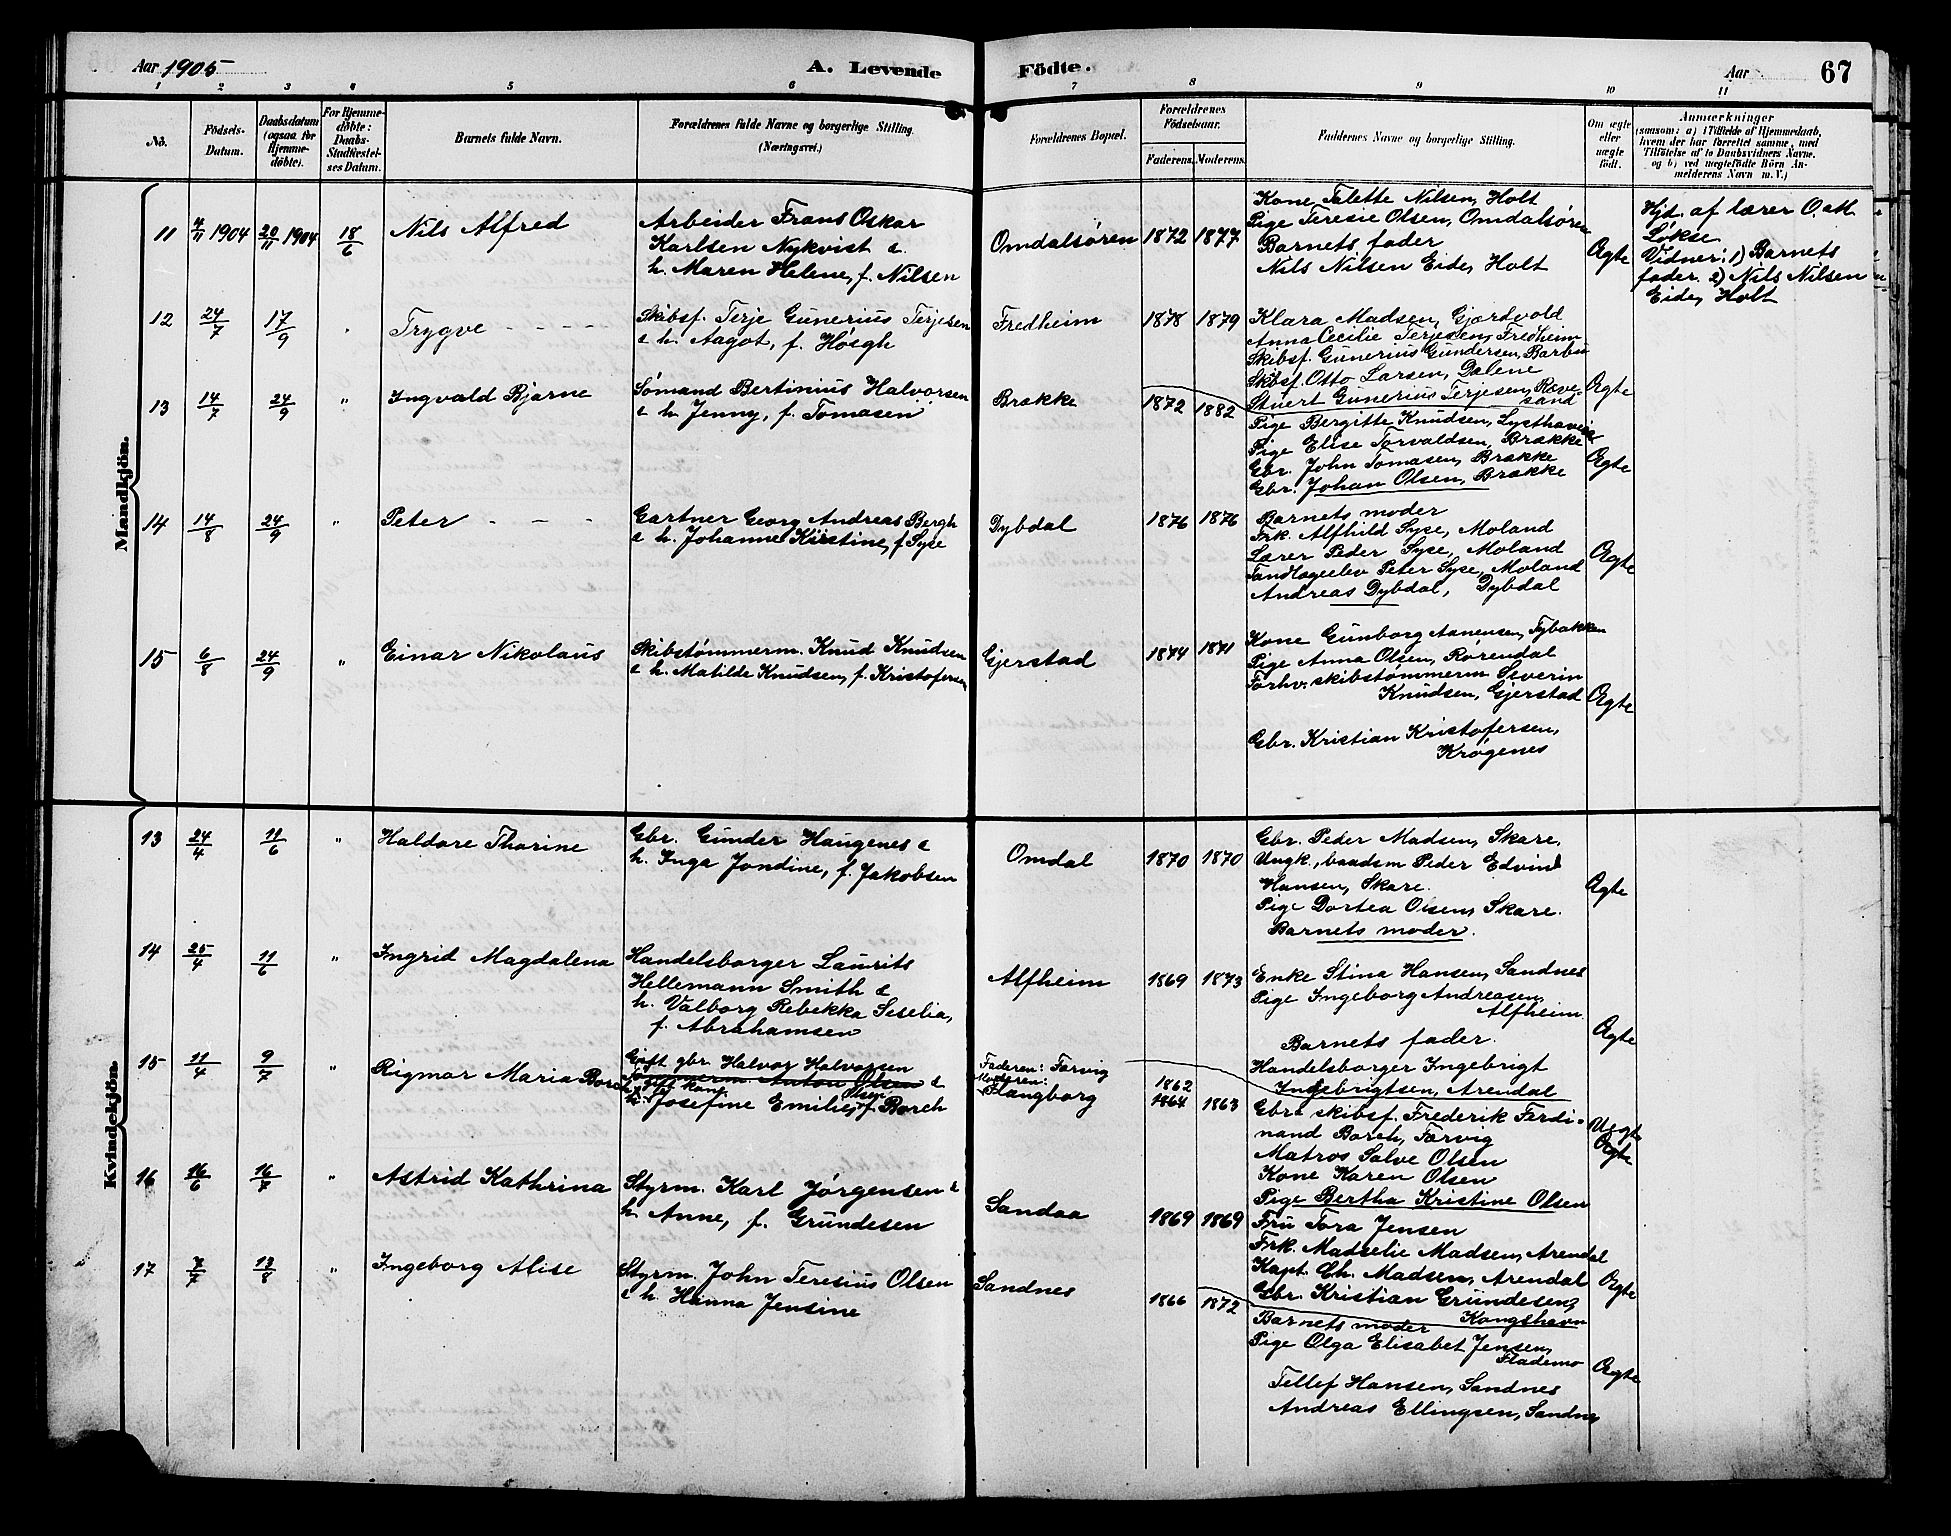 Aar 1905
A. Levende Födte.
Aar
67
1 2 3 4 5 6 7 8 9 10 11
No.
Födsels-
Datum.
Daabsdatum
(ogsaa for
Hjemme-
döbte).
For Hjemme-
döbte:
Daabs-
Stadfæstel-
ses Datum.
Barnets fulde Navn.
Forældrenes fulde Navne og borgerlige Stilling.
(Næringsvei.)
Forældrenes Bopæl.
Forældrenes
Födselsaar.
Faderens. Moderens.
Faddernes Navne og borgerlige Stilling.
Om ægte
eller
uægte
födt.
Anmærkninger
(saasom: a) i Tilfælde af Hjemmedaab,
hvem der har forrettet samme, med
Tilföielse af to Daabsvidners Navne,
og b) ved uægtefödte Börn An-
melderens Navn m. V.)
Mandkjön.
11 4/11 1904 20/11 1904 18/6 Nils Alfred
Arbeider Frans Oskar
Karlsen Nykvist &
h. Maren Helene, f. Nilsen
Omdalsören 1872 1877
Kone Talette Nilsen, Holt
Pige Teresie Olsen, Omdalsören
Barnets fader
Nils Nilsen Eide, Holt
Ægte
Hjd. af lærer O. M.
Løkse
Vidner: 1) Barnets
fader. 2) Nils Nilsen
Eide, Holt
12 24/7 17/9 " Trygve - - - -
Skibsf. Terje Gunerius Terjesen
& h. Aagot, f. Høegh
Fredheim 1878 1879
Klara Madsen, Gjærdvold
Anna Cecilie Terjesen, Fredheim
Skibsf. Gunerius Gundersen, Barbu
Skibsf. Otto Larsen, Dalene
Stuert Gunerius Terjesen, Ræve-
sand
Ægte
13 14/7 24/9 " Ingvald Bjarne
Sømand Bertinius Halvorsen
& h. Jenny, f. Tomasen
Brække 1872 1882
Pige Bergitte Knudsen, Lysthaven
Pige Elise Torvaldsen, Brække
Gbr. John Tomasen, Brække
Gbr. Johan Olsen, Brække
Ægte
14 14/8 24/9 " Peter - - -
Gartner Georg Andreas Bergh
& h. Johanne Kirstine, f. Syse
Dybdal 1876 1876
Barnets moder
Frk. Alfhild Syse, Moland
Lærer Peder Syse, Moland
Tandlægeelev Peter Syse, Moland
Andreas Dybdal, Dybdal
Ægte
15 6/8 24/9 " Einar Nikolaus
Skibstømmerm. Knud Knudsen
& h. Matilde Knudsen, f. Kristofersen
Gjerstad 1874 1871
Kone Gunborg Aanensen, Tybakken
Pige Anna Olsen, Rørendal
Forhv. skibstømmerm Severin
Knudsen, Gjerstad
Gbr. Kristian Kristofersen,
Krøgenes
Ægte
Kvindekjön.
13 24/4 11/6 " Haldore Thorine
Gbr. Gunder Haugenes &
h. Inga Jondine, f. Jakobsen
Omdal 1870 1870
Gbr. Peder Madsen, Skare.
Ungk., baadsm Peder Edvind
Hansen, Skare.
Pige Dortea Olsen, Skare.
Barnets moder.
Ægte
14 25/4 11/6 " Ingrid Magdalena
Handelsborger Laurits
Hellemann Smith &
h. Valborg Rebekka Seselia,
f. Abrahamsen
Alfheim 1869 1873
Enke Stina Hansen, Sandnes
Pige Ingeborg Andreasen
Alfheim
Barnets fader.
Handelsborger Ingebrigt
Ingebrigtsen, Arendal
Ægte
15 11/4 9/7 " Rigmor Maria Borch
Gift gbr. Halvor Halvorsen
Tømmerm Anton Olsen &
gift kone
h. Josefine Emilie Olsen f. Borch
Faderen: Færvig
Moderen:
Flangborg
1862
1864 1863
Gbr. skibsf. Frederik Ferdi-
nand Borch, Færvig
Matros Salve Olsen
Kone Karen Olsen
Pige Bertha Kristine Olsen
Uægte
Ægte
16 16/6 16/7 " Astrid Kathrina
Styrm. Karl Jørgensen &
h. Anne, f. Grundesen
Sandaa 1869 1869
Fru Tora Jensen
Frk. Madselie Madsen, Arendal
Kapt. Ch. Madsen, Arendal
Gbr. Kristian Grundesen,
Kongshavn
Ægte
17 7/7 13/8 " Ingeborg Alise
Styrm. John Teresius Olsen
& h. Hanna Jensine
Sandnes 1866 1872
Barnets moder
Pige Olga Elisabet Jensen,
Flademo
Tellef Hansen, Sandnes
Andreas Ellingsen, Sandnes
Ægte